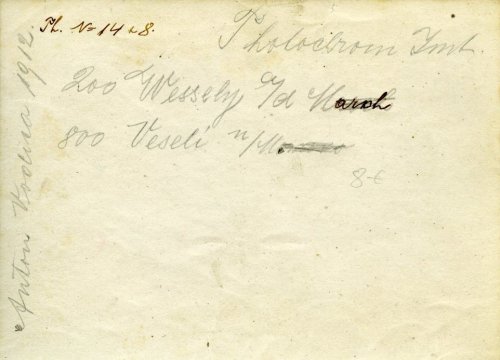 Ph. No 14 8.
Photochrom Imt.
200 Wessely a/d March
800 Veselí n/M
8-
Anton 1912